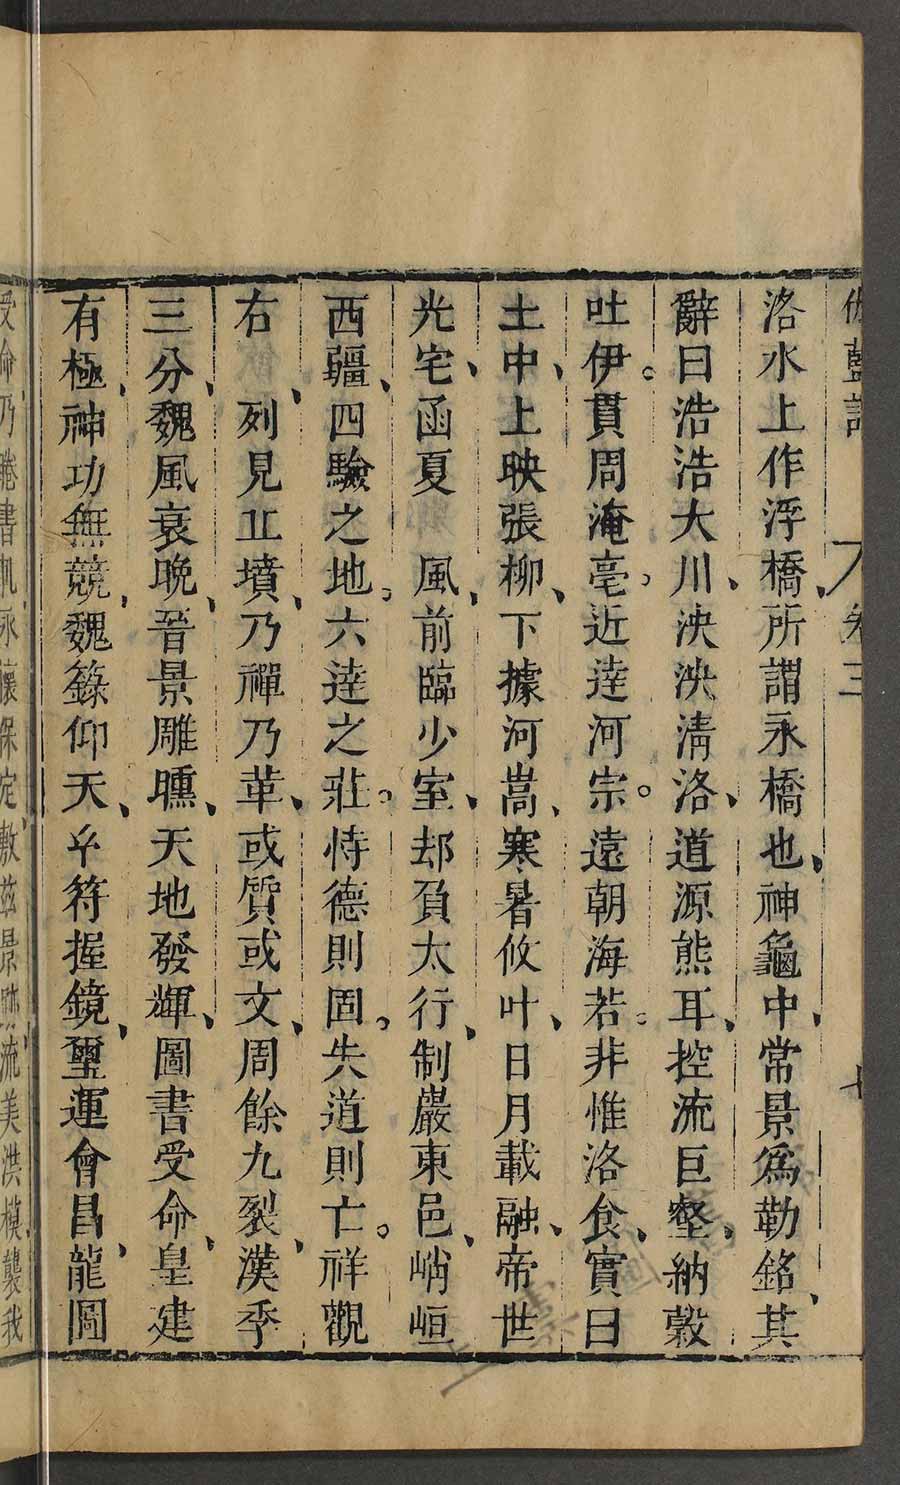 伽藍記 卷三 七
洛水上作浮橋、所謂永橋也、神龜中、常景爲勒銘、其
辭曰浩浩大川、泱泱淸洛、道源熊耳、控流巨壑、納穀
吐伊。貫周淹亳。近達河宗。遠朝海若。非惟洛食、實曰
土中、上映張柳、下據河嵩、寒暑攸叶、日月載融、帝世
光宅、函夏 風、前臨少室、却負太行、制巖東邑、峭峘
西疆、四驗之地。六逹之莊。恃德則固。失道則亡。祥觀
右 、列見丘墳、乃禪乃革、或質或文、周餘九裂、漢季
三分、魏風衰晩、晉景雕曛、天地發輝、圖書受命、皇建
有極、神功無競、魏籙仰天、𤣥符握鏡、璽運會昌、龍圖
受命、乃睠書軌、永懷保定、敷兹景跡、流美洪模、襲我